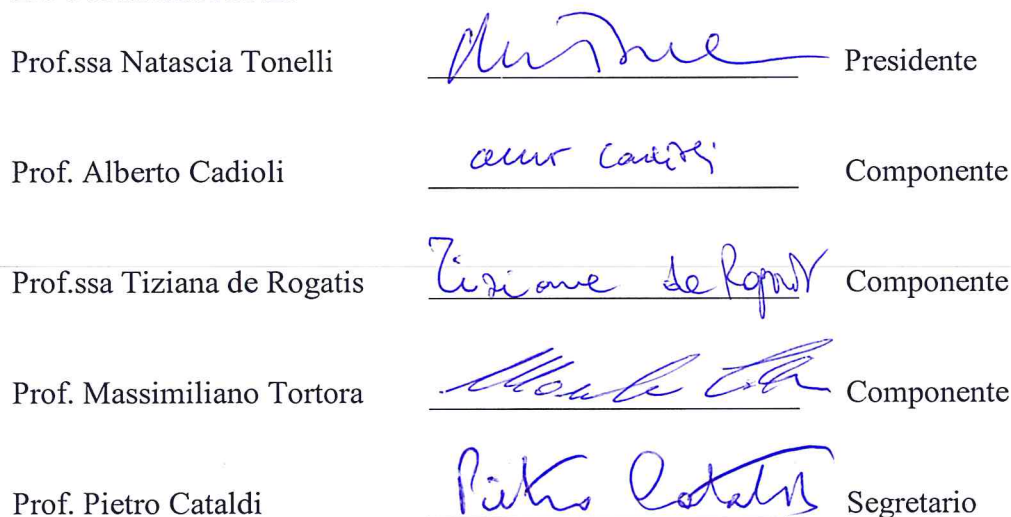 Prof.ssa Natascia Tonelli Presidente
Prof. Alberto Cadioli Componente
Prof.ssa Tiziana de Rogatis Tiziana de Rogatis Componente
Prof. Massimiliano Tortora Componente
Prof. Pietro Cataldi Pietro Cataldi Segretario